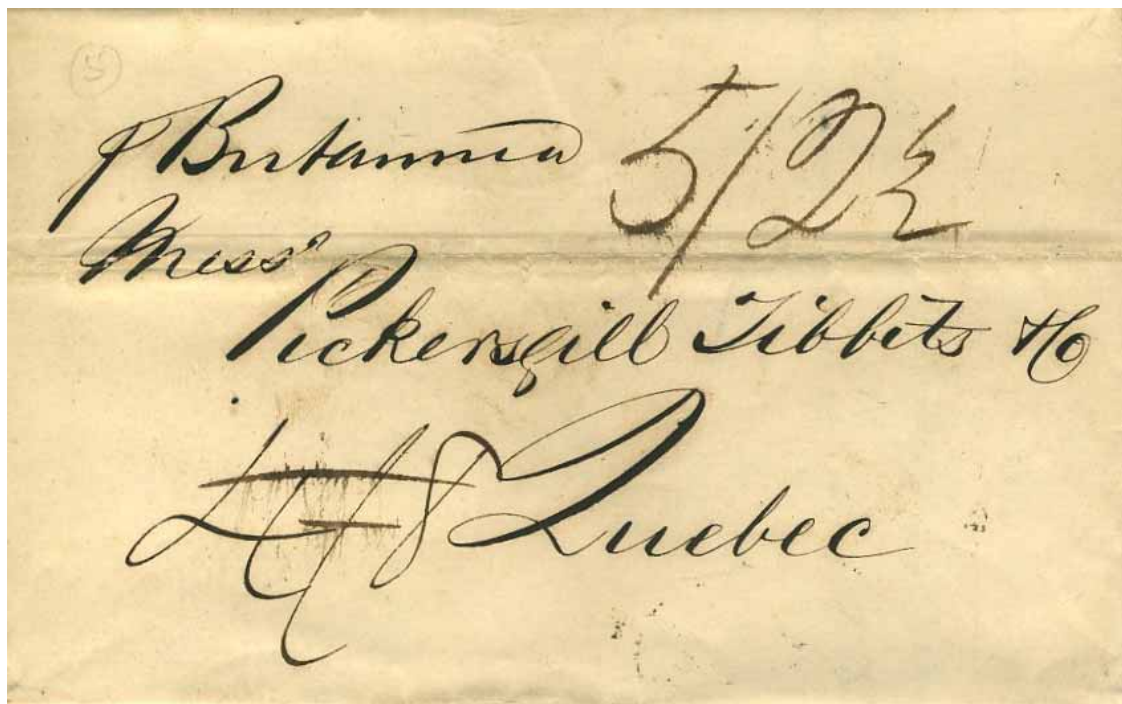 5
p Britannia 5/2½
Messrs
Pickersgill Tibbits & Co
4/8 Quebec